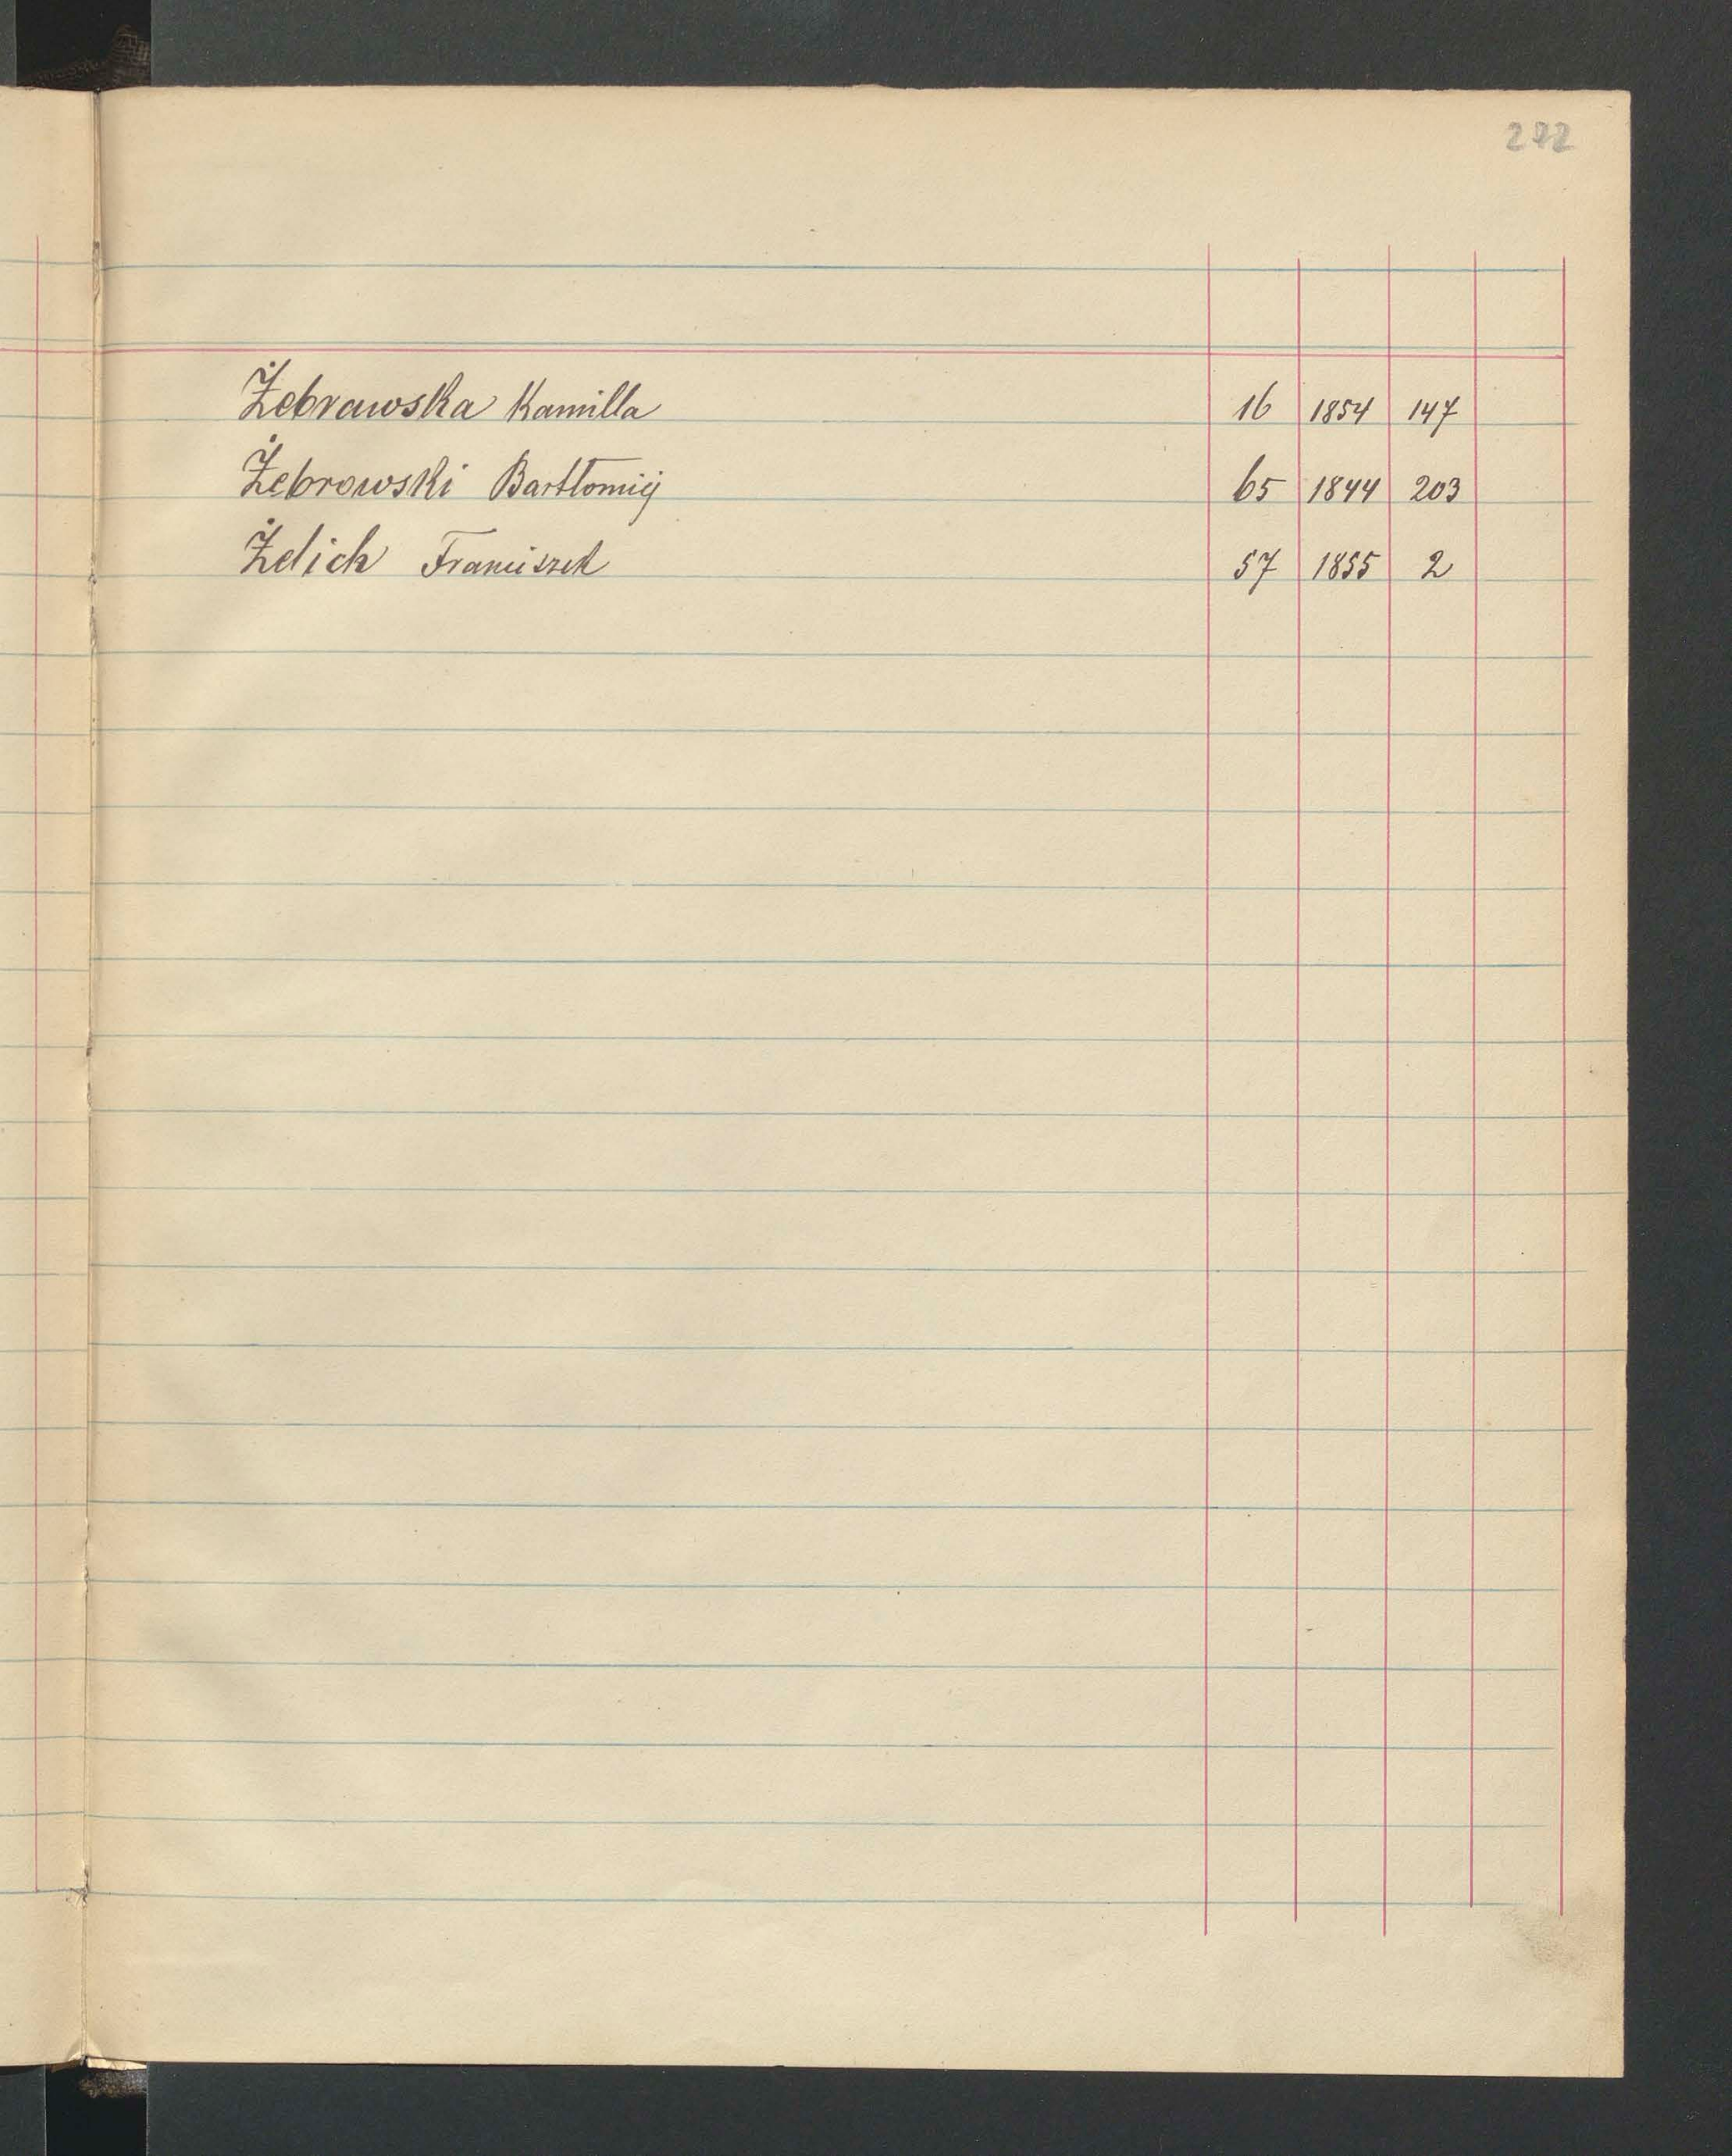 272
Żebrawska Kamilla 16 1854 147
Żebrowski Bartłomiej 65 1844 203
Żelich Franciszek 57 1855 2